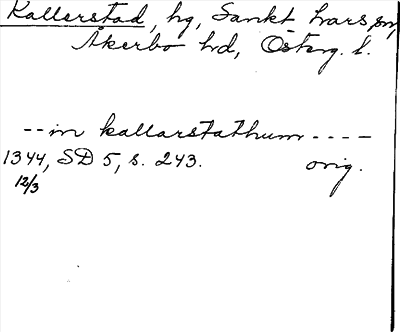 Kallerstad, hg, Sankt Lars sn,
Åkerbo hd, Österg. l.
-- in kallarstathum ----
1344, SD 5, s. 243. orig.
12/3